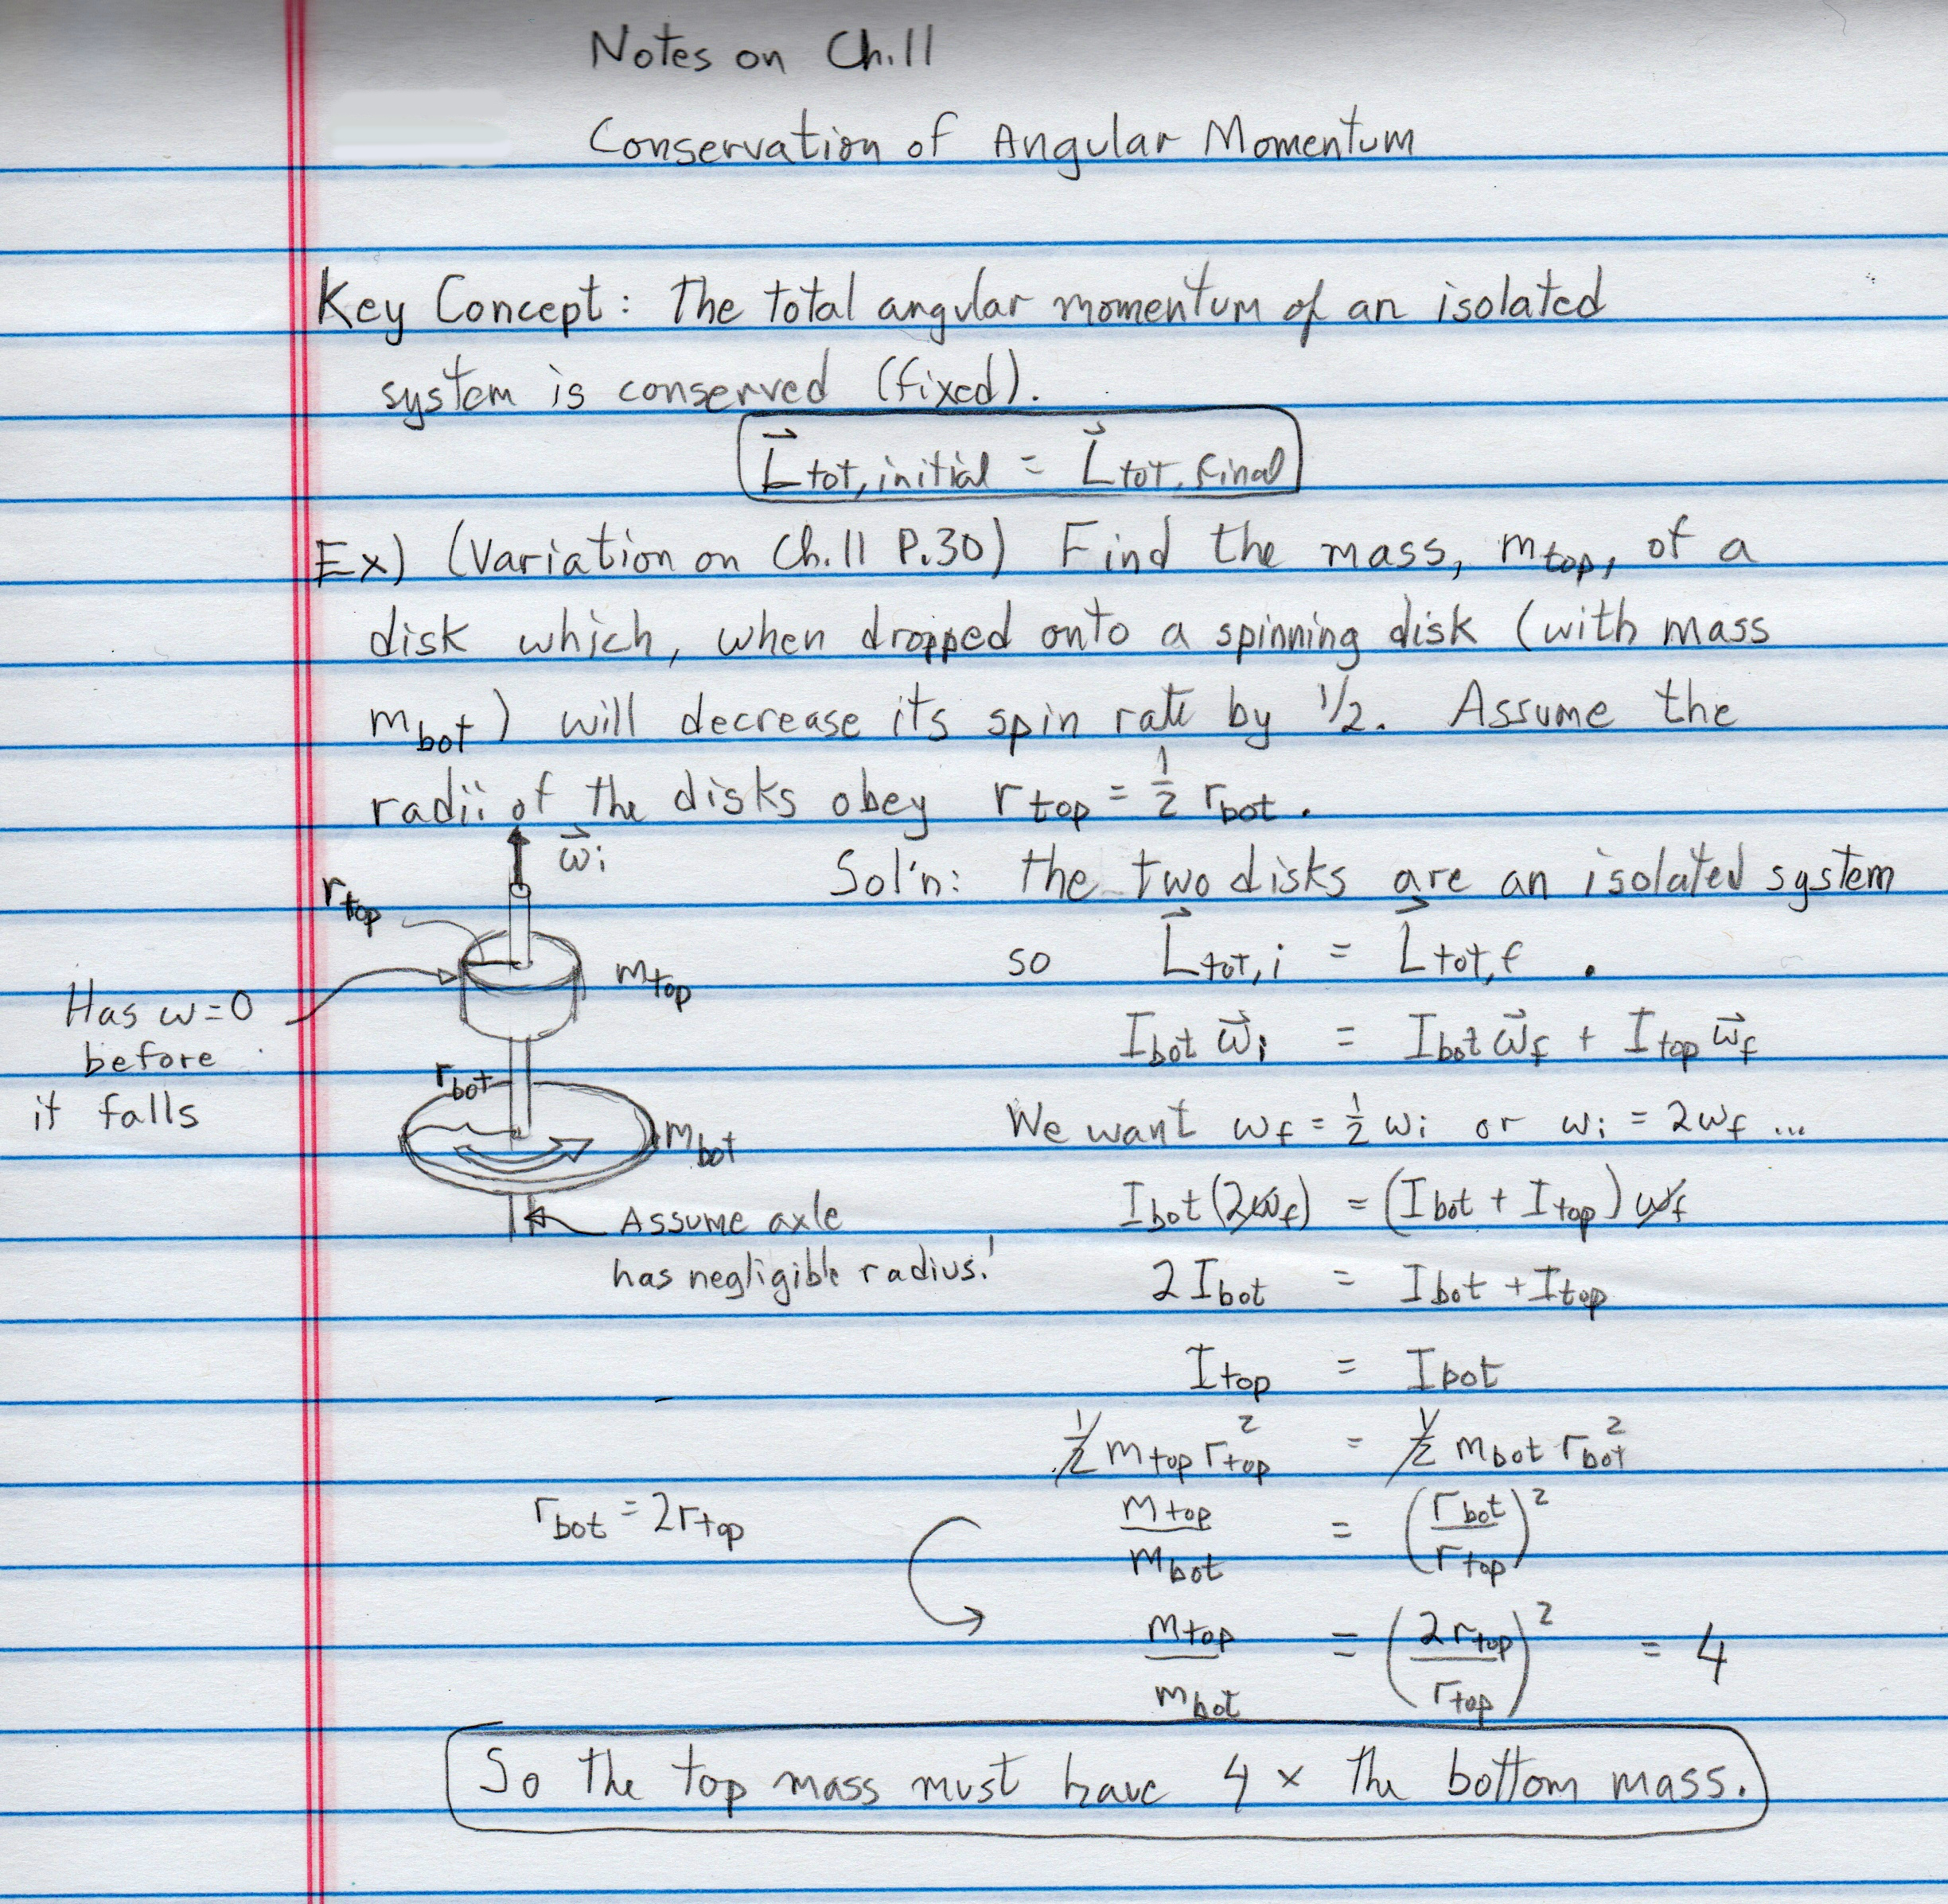 Notes on Ch.11
Conservation of Angular Momentum
Key Concept: The total angular momentum of an isolated
system is conserved (fixed).
L⃗tot, initial = L⃗tot, final
Ex) (Variation on Ch.11 P.30) Find the mass, mtop, of a
disk which, when dropped onto a spinning disk (with mass
mbot) will decrease its spin rate by 1/2. Assume the
radii of the disks obey rtop = 1/2 rbot.
ω⃗i
rtop
mtop
Has ω=0
before
it falls
rbot
mbot
Assume axle
has negligible radius!
Sol'n: The two disks are an isolated system
so L⃗tot,i = L⃗tot,f .
Ibot ω⃗i = Ibot ω⃗f + Itop ω⃗f
We want ωf = 1/2 ωi or ωi = 2ωf ...
Ibot (2ωf) = (Ibot + Itop) ωf
2 Ibot = Ibot + Itop
Itop = Ibot
1/2 mtop rtop² = 1/2 mbot rbot²
mtop/mbot = (rbot/rtop)²
rbot = 2rtop
mtop/mbot = (2rtop/rtop)² = 4
So the top mass must have 4 × the bottom mass.